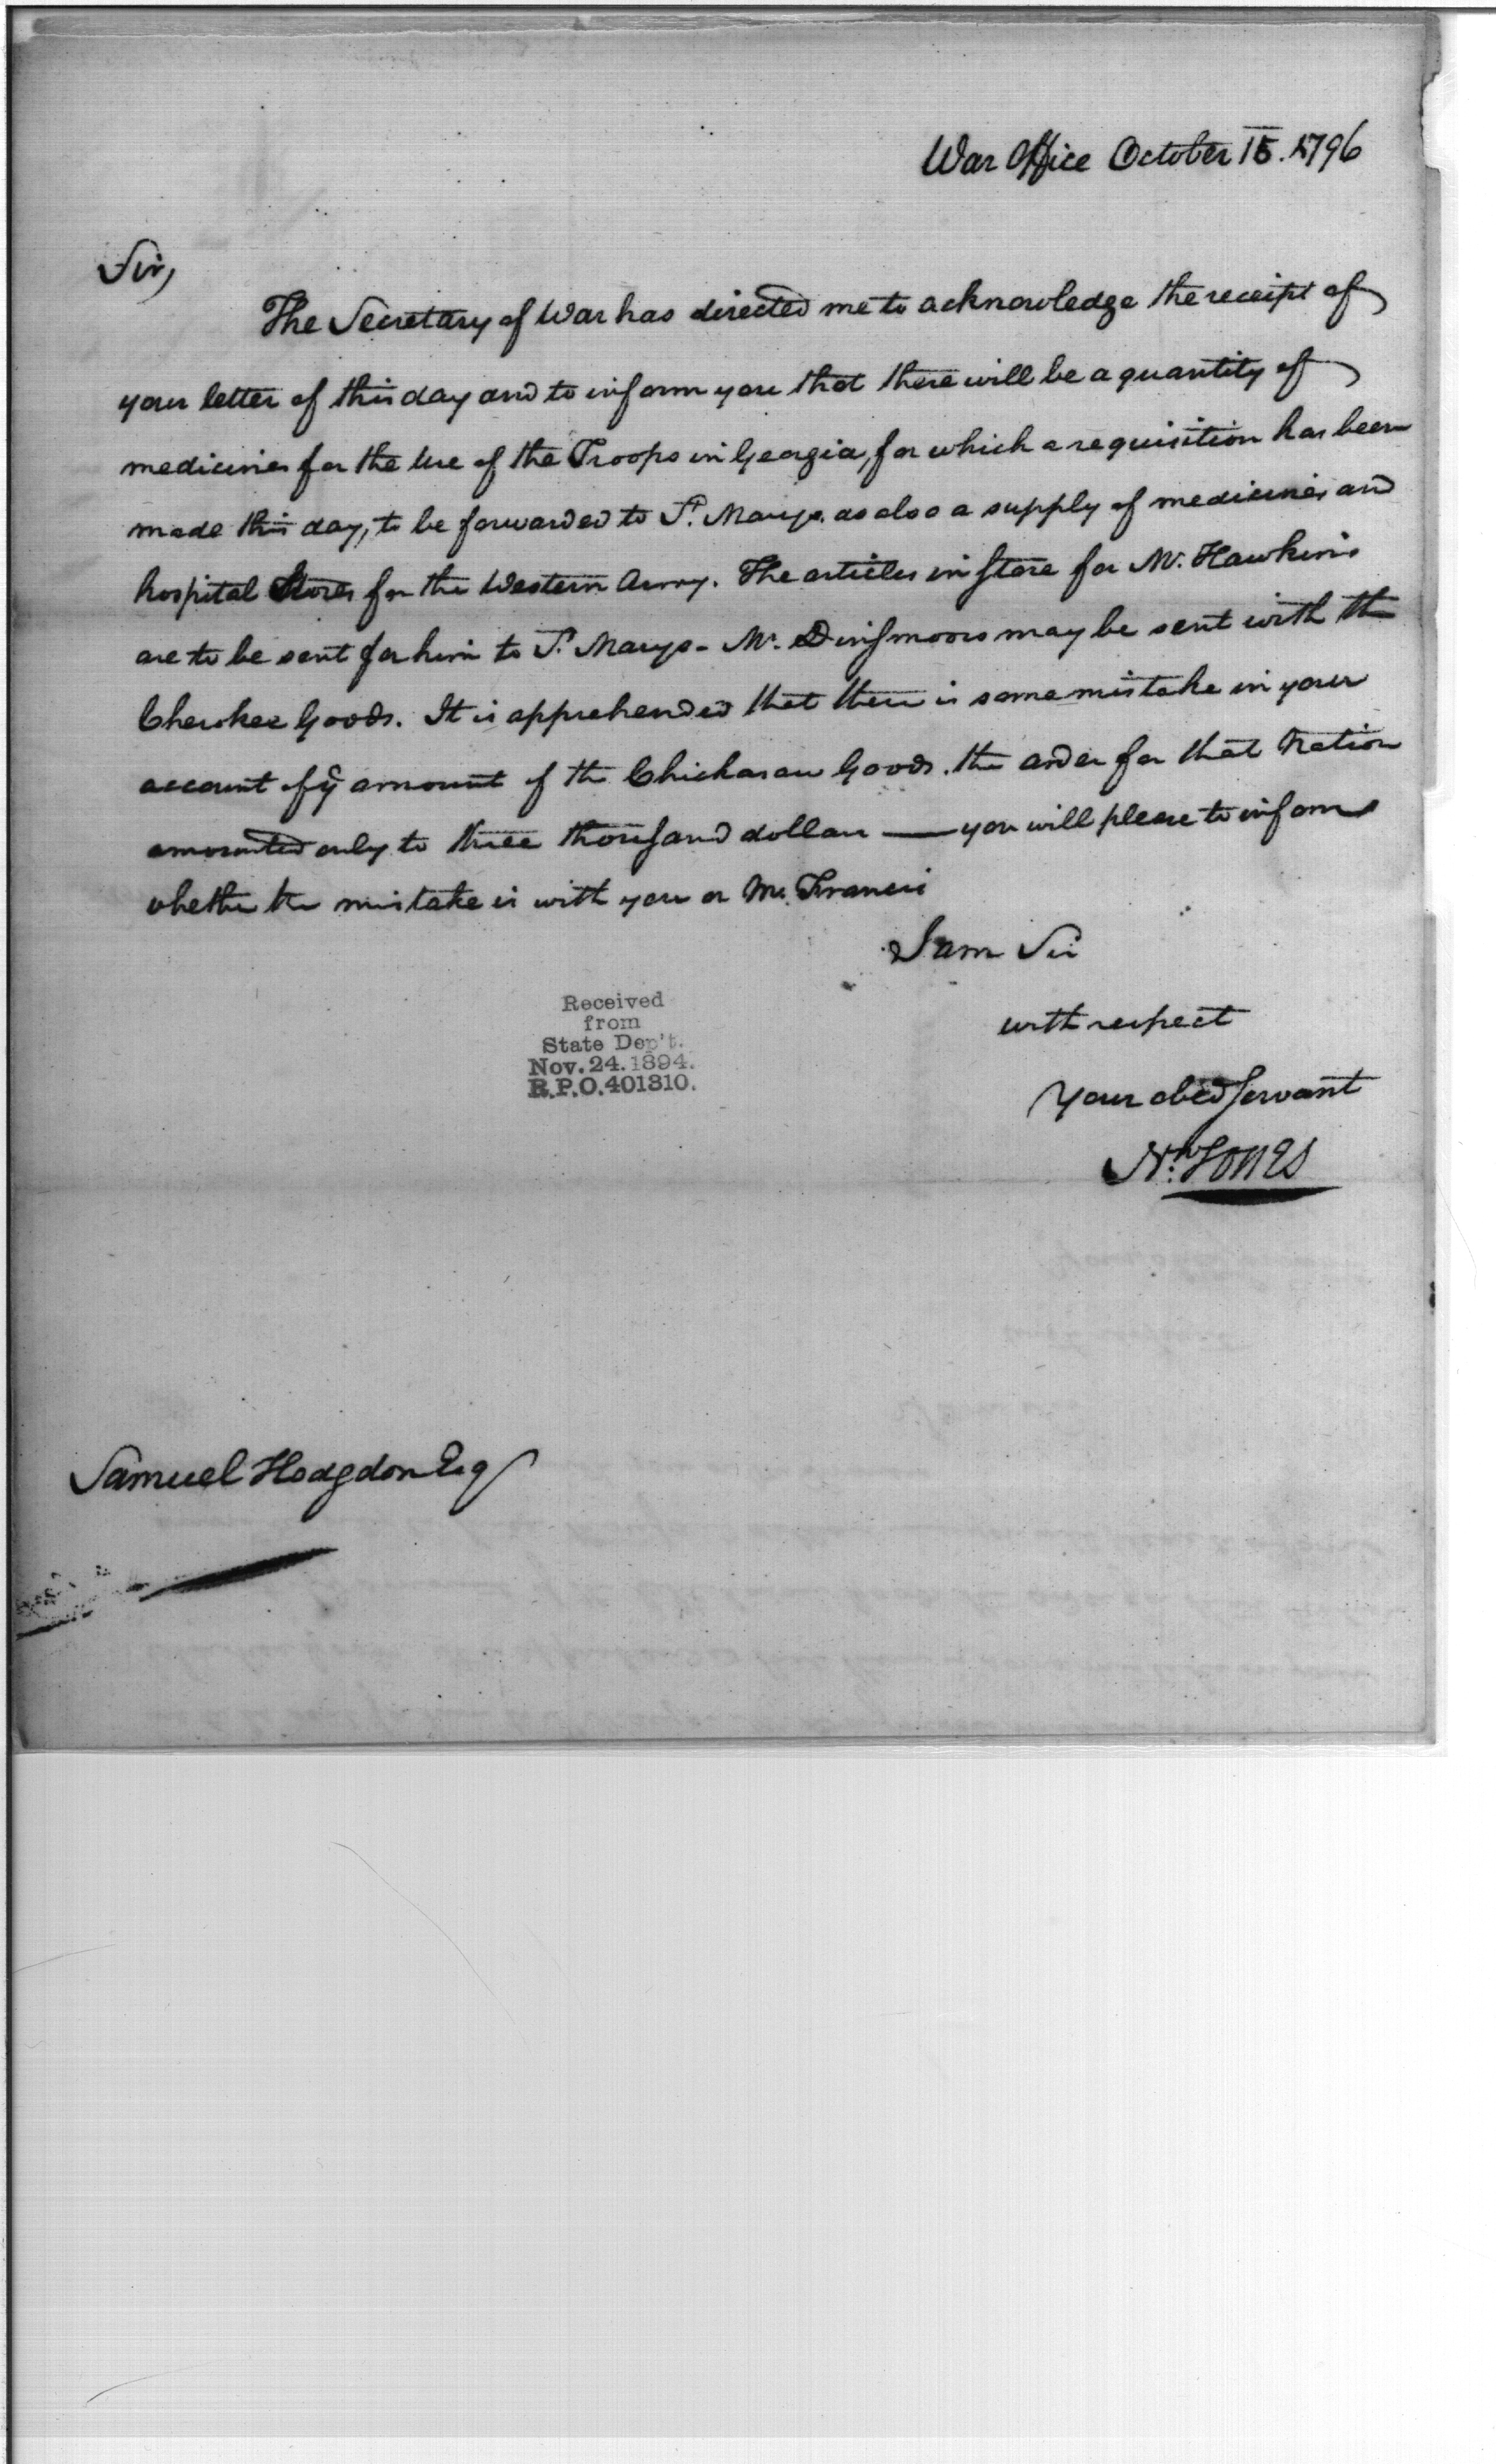 War Office October 15. 1796
Sir,
The Secretary of War has directed me to acknowledge the receipt of
your letter of this day and to inform you that there will be a quantity of
medicines for the Use of the Troops in Georgia, for which a requisition has been
made this day, to be forwarded to St. Marys. as also a supply of medicines and
hospital Stores for the Western Army. The articles in store for Mr. Hawkins
are to be sent for him to St. Marys - Mr. Dinsmoors may be sent with the
Cherokee Goods. It is apprehended that there is some mistake in your
account of ye amount of the Chickasaw Goods. the order for that Nation
amounted only to three thousand dollars — you will please to inform
whether the mistake is with you or Mr. Francis
I am Sir
with respect
Your obed Servant
Nw. Jones
Received
from
State Dep't.
Nov. 24. 1894.
R.P.O. 401310.
Samuel Hodgdon Esq